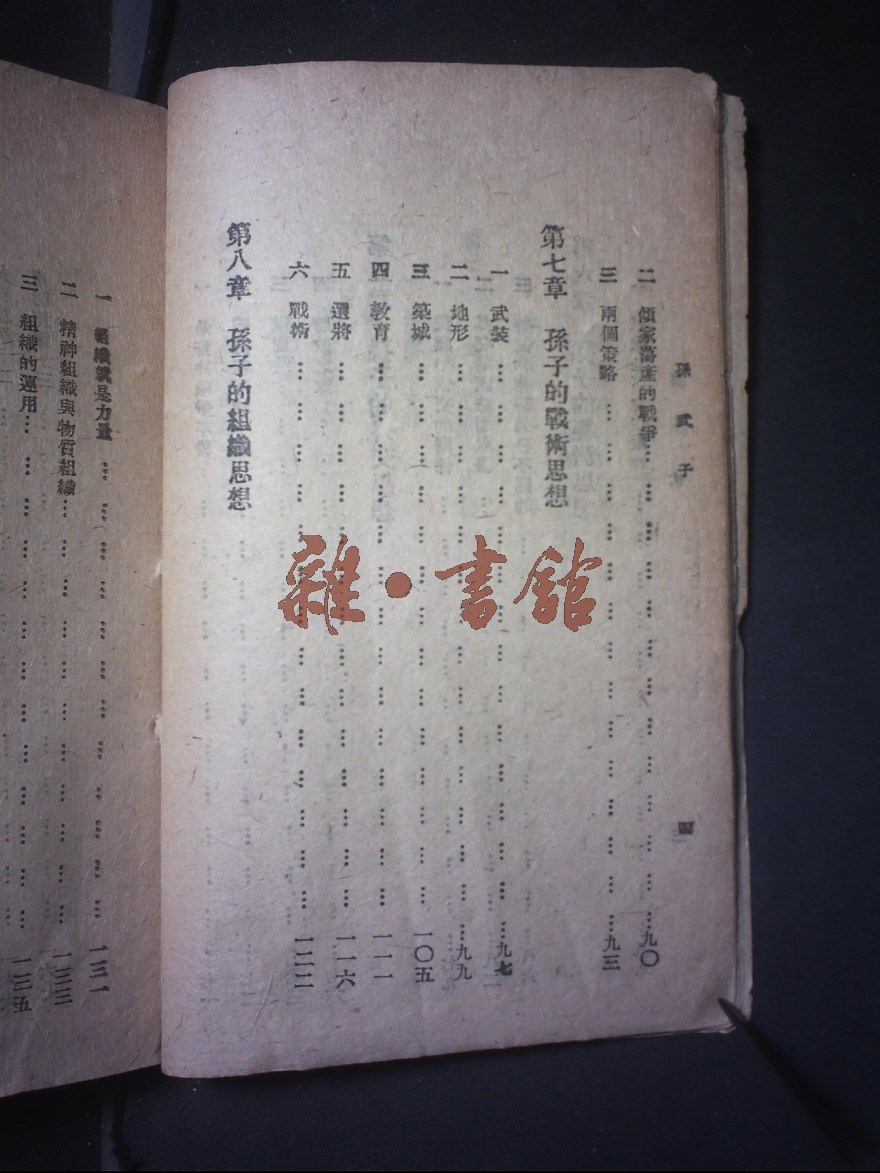 孫武子
四
二 傾家蕩產的戰爭……九〇
三 兩個策略……九三
第七章 孫子的戰術思想
一 武裝……九七
二 地形……九九
三 築城……一〇五
四 教育……一一一
五 選將……一一六
六 戰術……一二二
第八章 孫子的組織思想
一 組織就是力量……一三一
二 精神組織與物質組織……一三三
三 組織的運用……一三五
雜·書館